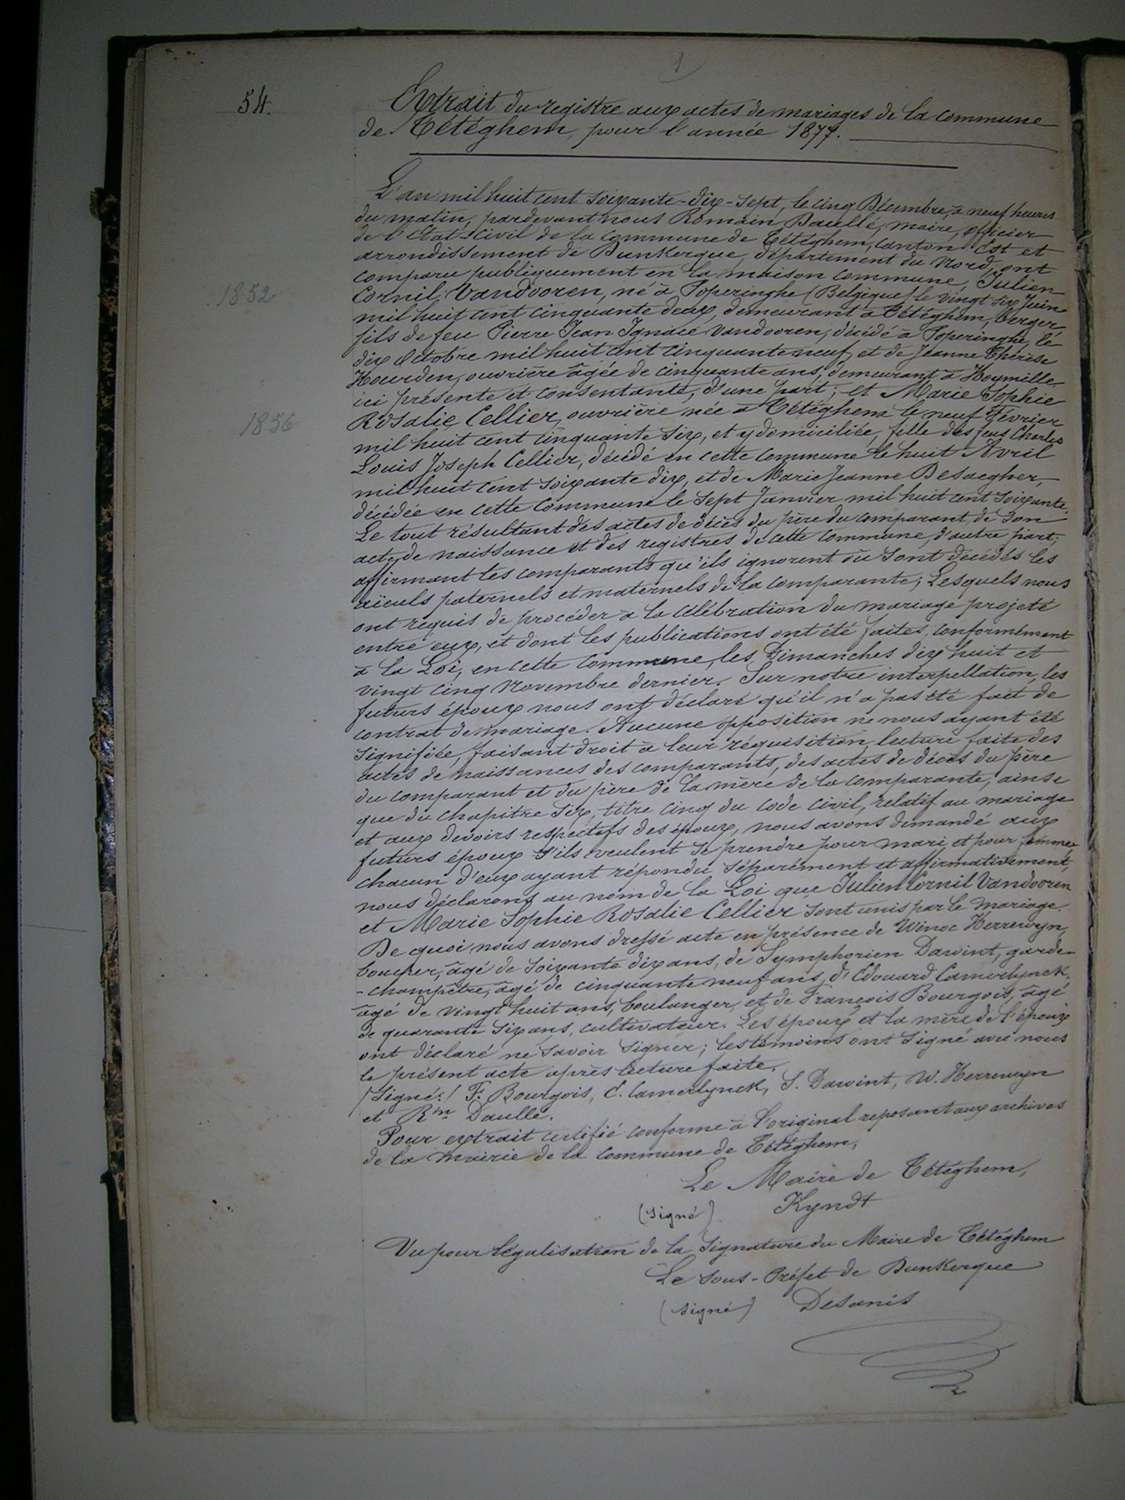 1
54.
Extrait du registre aux actes de mariages de la commune
de Tétéghem, pour l'année 1877.
L'an mil huit cent soixante-dix-sept, le cinq Décembre, à neuf heures
du matin, pardevant nous Romain Daullé, maire, officier
de l'Etat-Civil de la Commune de Tétéghem, canton Est et
arrondissement de Dunkerque, département du Nord, ont
comparu publiquement en la maison commune, Julien
Cornil Vandooren, né à Poperinghe (Belgique) le vingt six Juin
1852
mil huit cent cinquante deux, demeurant à Tétéghem, berger,
fils de feu Pierre Jean Ignace Vandooren, décédé à Poperinghe, le
dix Octobre mil huit cent cinquante neuf, et de Jeanne Thérèse
Hourden, ouvrière âgée de cinquante ans, demeurant à Hoymille,
ici présente et consentante, d'une part; et Marie Sophie
Rosalie Cellier, ouvrière née à Tétéghem le neuf Février
1856
mil huit cent cinquante six, et y domiciliée, fille des feus Charles
Louis Joseph Cellier, décédé en cette commune le huit Avril
mil huit cent soixante dix, et de Marie Jeanne Desaegher,
décédée en cette commune le sept Janvier mil huit cent soixante.
Le tout résultant des actes de décès du père du comparant, de son
acte de naissance et des registres de cette commune, d'autre part;
affirmant les comparants qu'ils ignorent où sont décédés les
aïeuls paternels et maternels de la comparante; Lesquels nous
ont requis de procéder à la célébration du mariage projeté
entre eux, et dont les publications ont été faites, conformément
à la Loi, en cette commune, les Dimanches dix huit et
vingt cinq Novembre dernier. Sur notre interpellation, les
futurs époux nous ont déclaré qu'il n'a pas été fait de
contrat de mariage. Aucune opposition ne nous ayant été
signifiée, faisant droit à leur réquisition, lecture faite des
actes de naissances des comparants, des actes de décès du père
du comparant et du père de la mère de la comparante, ainsi
que du chapitre six, titre cinq du code civil, relatif au mariage
et aux devoirs respectifs des époux, nous avons demandé aux
futurs époux s'ils veulent se prendre pour mari et pour femme,
chacun d'eux ayant répondu séparément et affirmativement,
nous déclarons au nom de la Loi que Julien Cornil Vandooren
et Marie Sophie Rosalie Cellier sont unis par le mariage.
De quoi, nous avons dressé acte en présence de Winoc Herrewyn,
boucher, âgé de soixante dix ans, de Symphorien Dawint, garde
-champêtre, âgé de cinquante neuf ans, d'Edouard Camerlynck,
âgé de vingt huit ans, boulanger, et de François Bourgois, âgé
de quarante six ans, cultivateur. Les époux et la mère de l'époux
ont déclaré ne savoir signer; les témoins ont signé avec nous
le présent acte après lecture faite.
(Signé:) F. Bourgois, E. Camerlynck, S. Dawint, W. Herrewyn
et Rm Daullé.
Pour extrait certifié conforme à l'original reposant aux archives
de la mairie de la commune de Tétéghem,
Le Maire de Tétéghem,
(Signé) Kyndt
Vu pour légalisation de la signature du Maire de Tétéghem
Le Sous-Préfet de Dunkerque
(Signé) Desanis